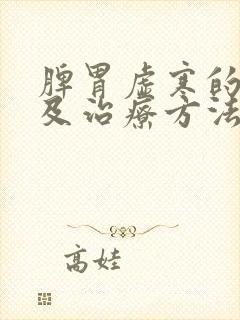 脾胃虚寒的
及治疗方法
高娃